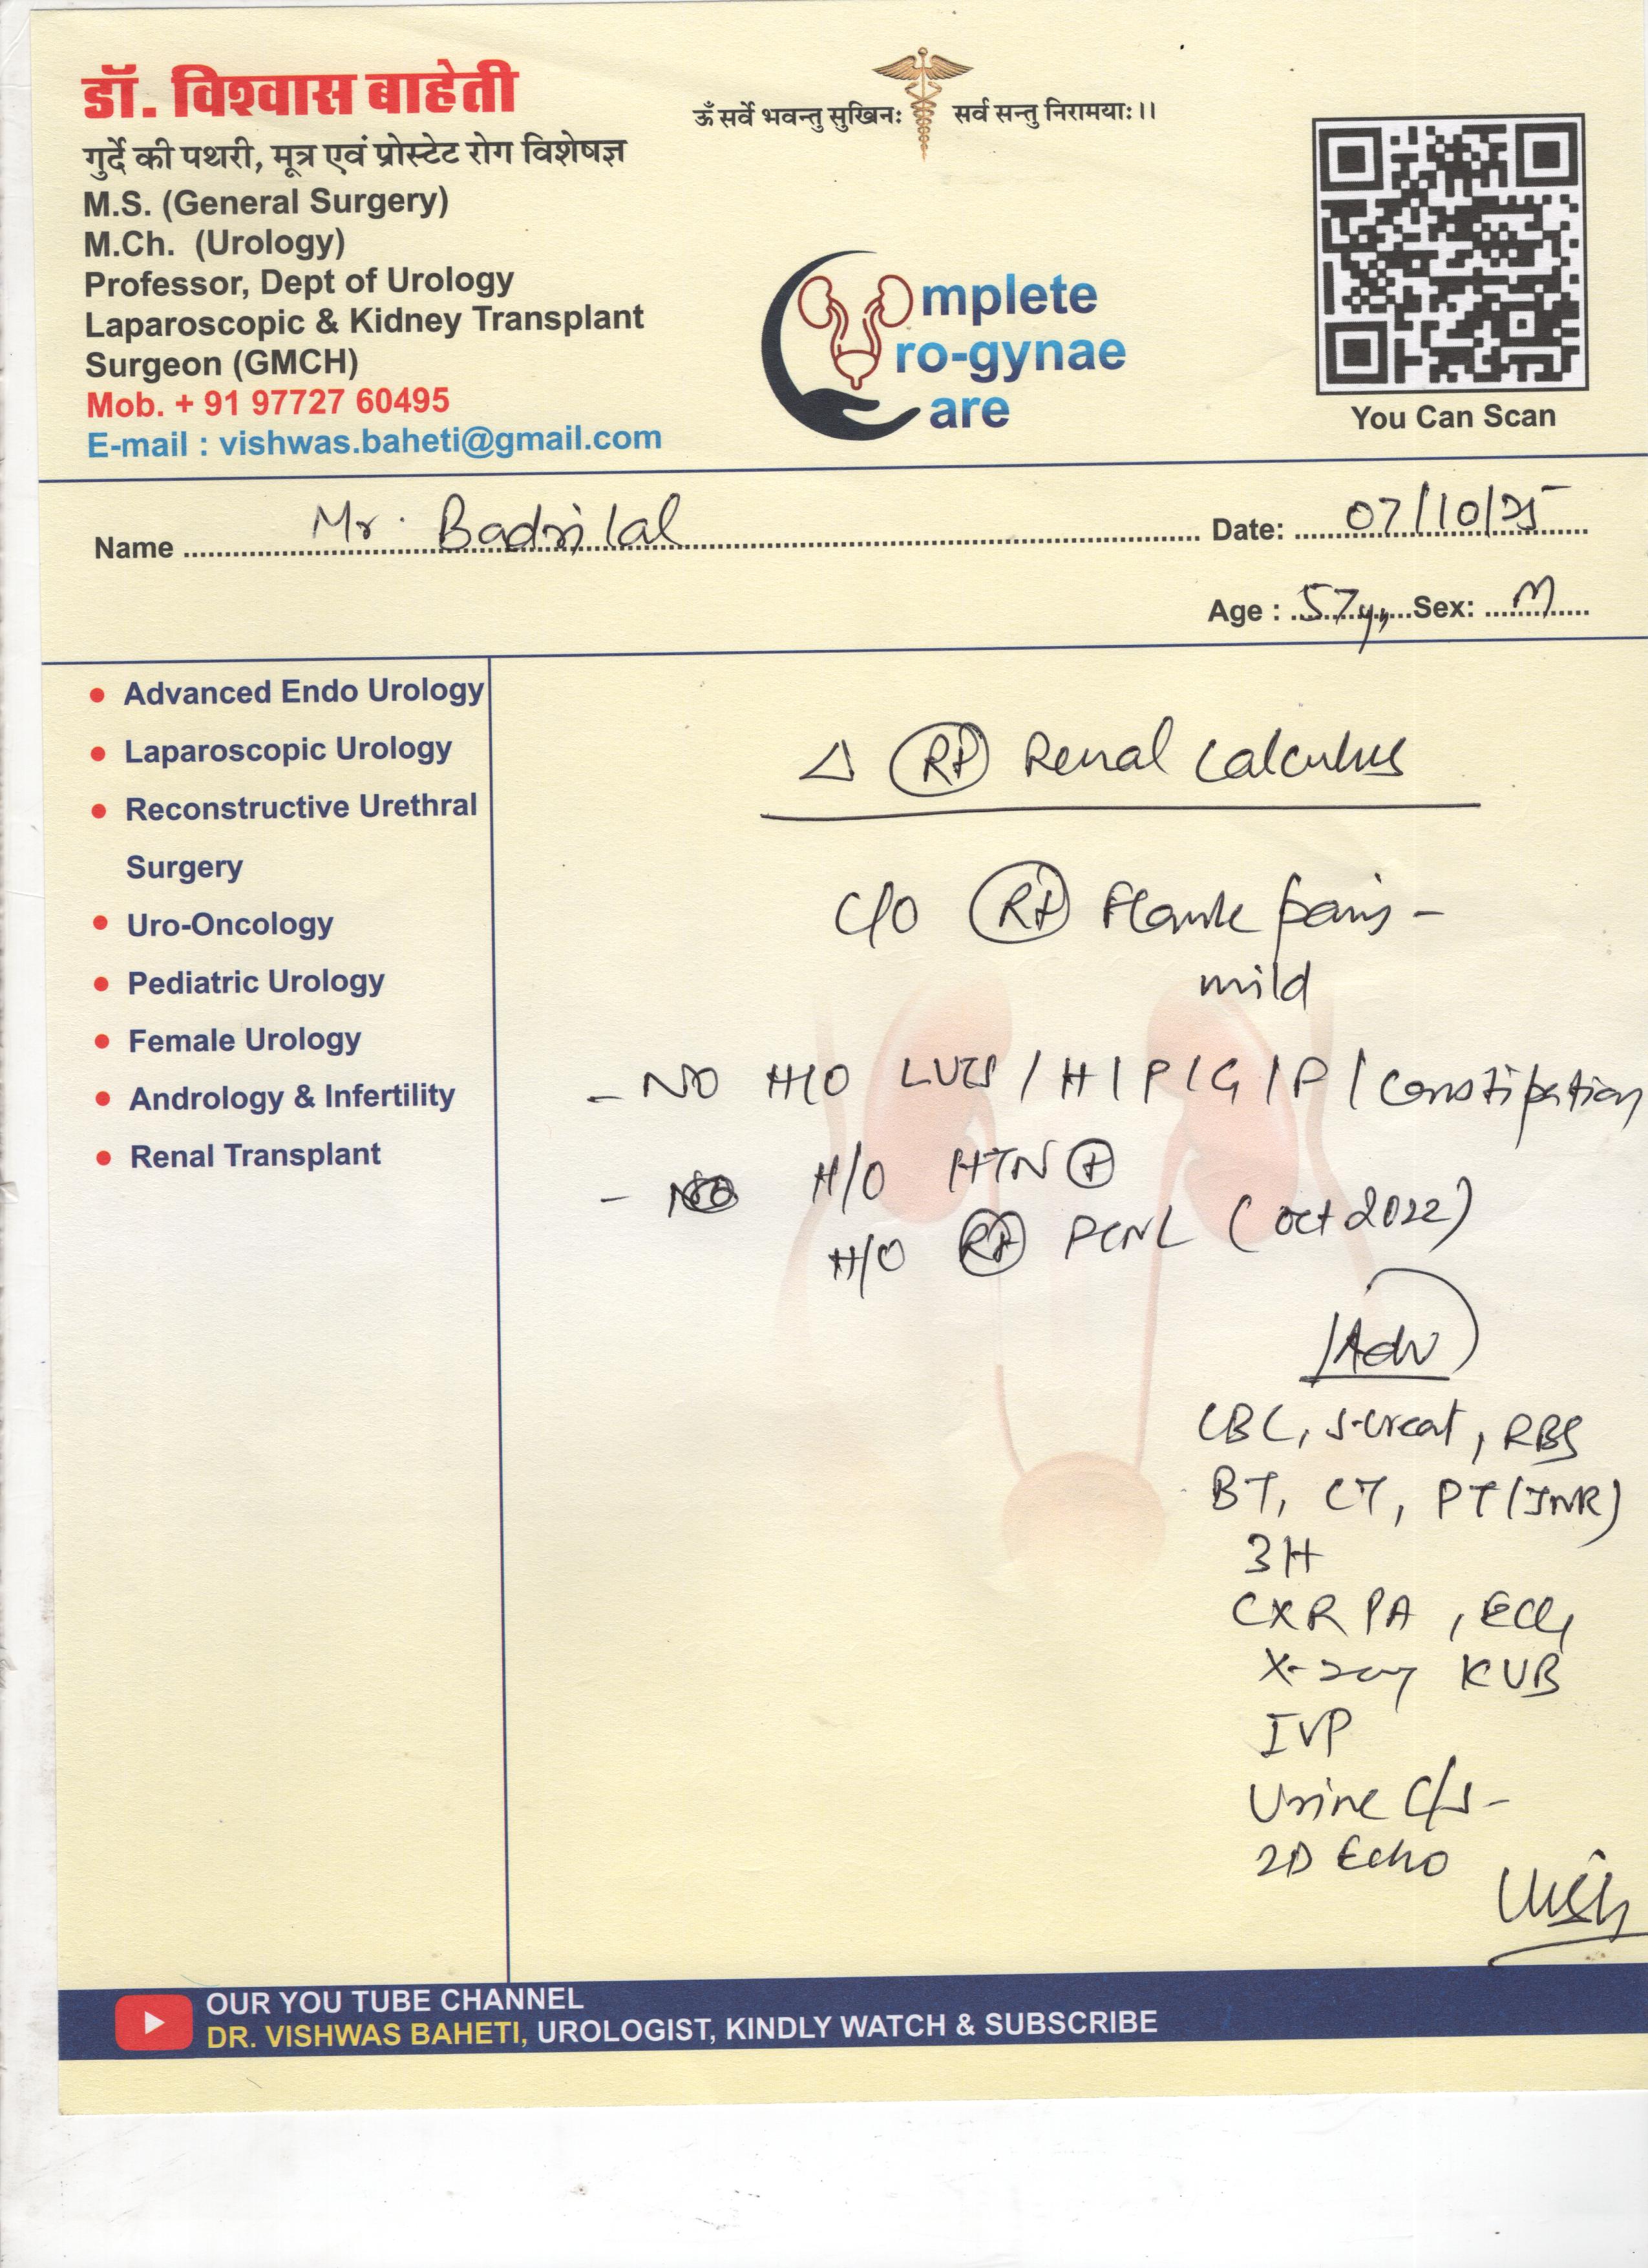 डॉ. विश्वास बाहेती
गुर्दे की पथरी, मूत्र एवं प्रोस्टेट रोग विशेषज्ञ
M.S. (General Surgery)
M.Ch. (Urology)
Professor, Dept of Urology
Laparoscopic & Kidney Transplant
Surgeon (GMCH)
Mob. + 91 97727 60495
E-mail : vishwas.baheti@gmail.com
ॐ सर्वे भवन्तु सुखिनः सर्व सन्तु निरामयाः।।
mplete
ro-gynae
are
You Can Scan
Name Mr. Badrilal Date: 07/10/25
Age : 57 yrs Sex: M
• Advanced Endo Urology
• Laparoscopic Urology
• Reconstructive Urethral
Surgery
• Uro-Oncology
• Pediatric Urology
• Female Urology
• Andrology & Infertility
• Renal Transplant
Δ Rt Renal Calculus
C/O Rt Flank pain -
mild
- NO H/O LUTS / H / P / G / P / Constipation
- H/O HTN +
H/O Rt PCNL (Oct 2022)
Adv
CBC, S-Creat, RBS
BT, CT, PT/INR)
3H
CXR PA, ECG
X-ray KUB
IVP
Urine C/S -
2D Echo
OUR YOU TUBE CHANNEL
DR. VISHWAS BAHETI, UROLOGIST, KINDLY WATCH & SUBSCRIBE